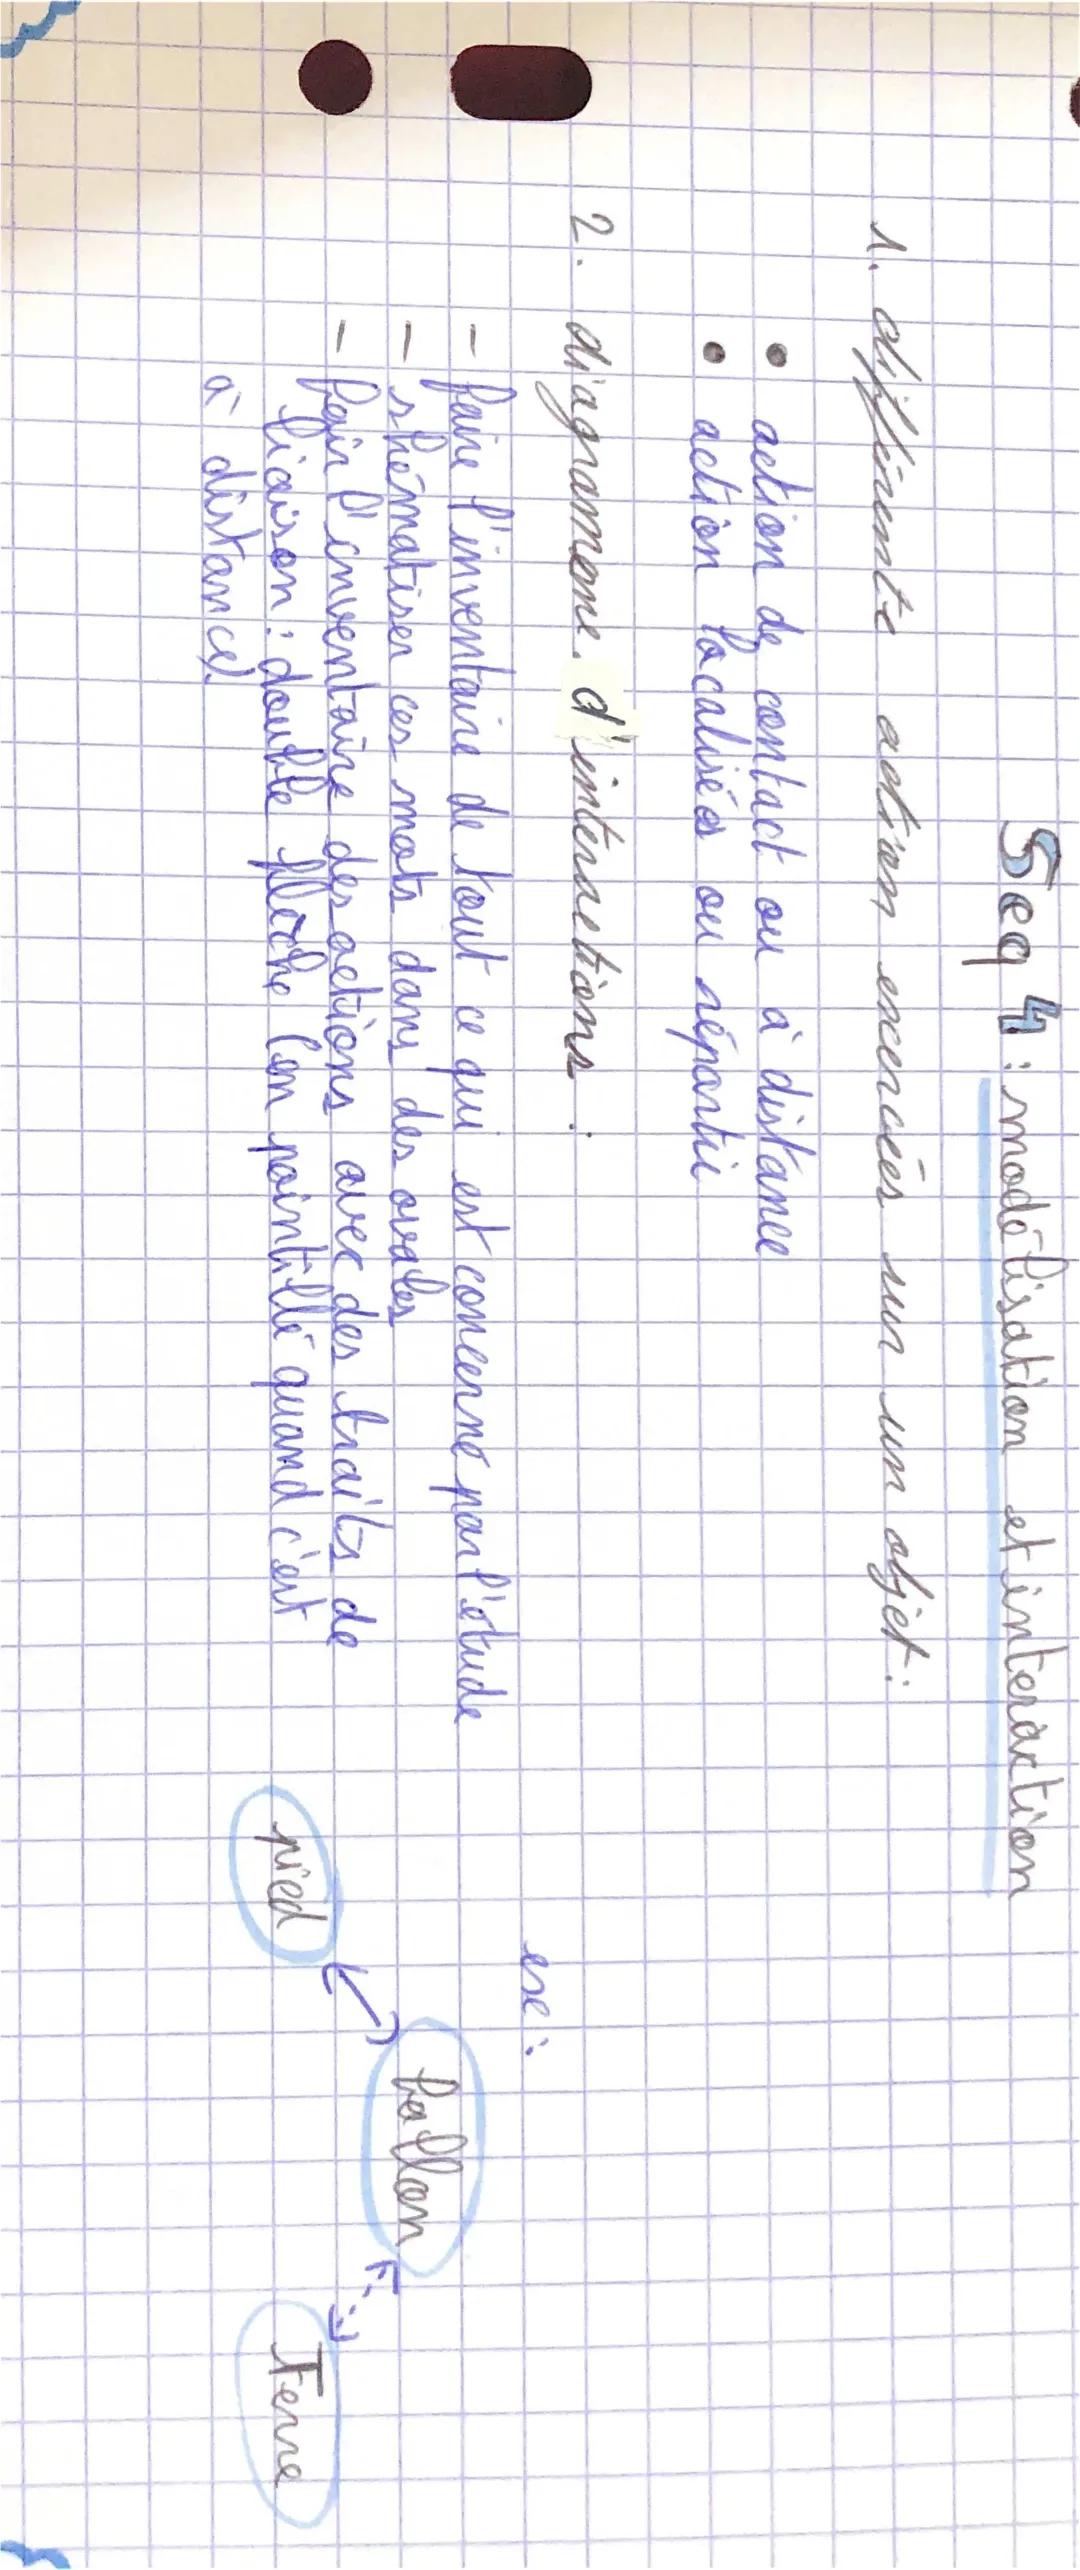 Seq 4 : modélisation et interaction
1. différente action exercées sur un objet :
• action de contact ou à distance
• action localisées ou répartie
2. diagramme d'interactions :
– faire l'inventaire de tout ce qui est concerné par l'étude
– shématiser ces mots dans des ovales
– fair l'inventaire des actions avec des traits de
liaison : double flèche (en pointillé quand c'est
à distance).
ex :
ballon
pied
Terre